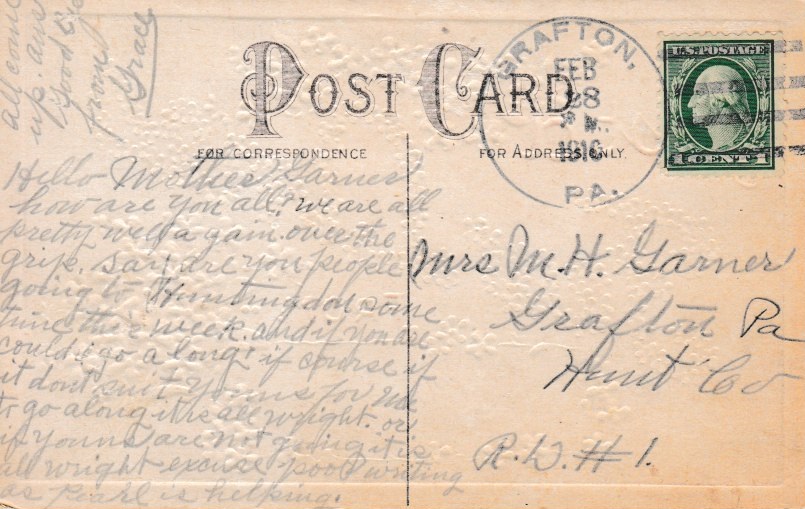 all come
up. ans
Good bye
from
Grace
POST CARD
FOR CORRESPONDENCE
FOR ADDRESS ONLY.
GRAFTON,
FEB
28
P M.
1916
PA.
U.S. POSTAGE
1 CENT 1
Hello Mother Garner
how are you all? we are all
pretty well a gain over the
grip. say are you people
going to Huntingdon some
time this week. and if you are
could i go a long? if course if
it dont suit youns for me
to go along it is all wright. or
if youns are not going it is
all wright excuse poor writing
as pearl is helping.
Mrs M.H. Garner
Grafton Pa
Hunt Co
R.D.#1.